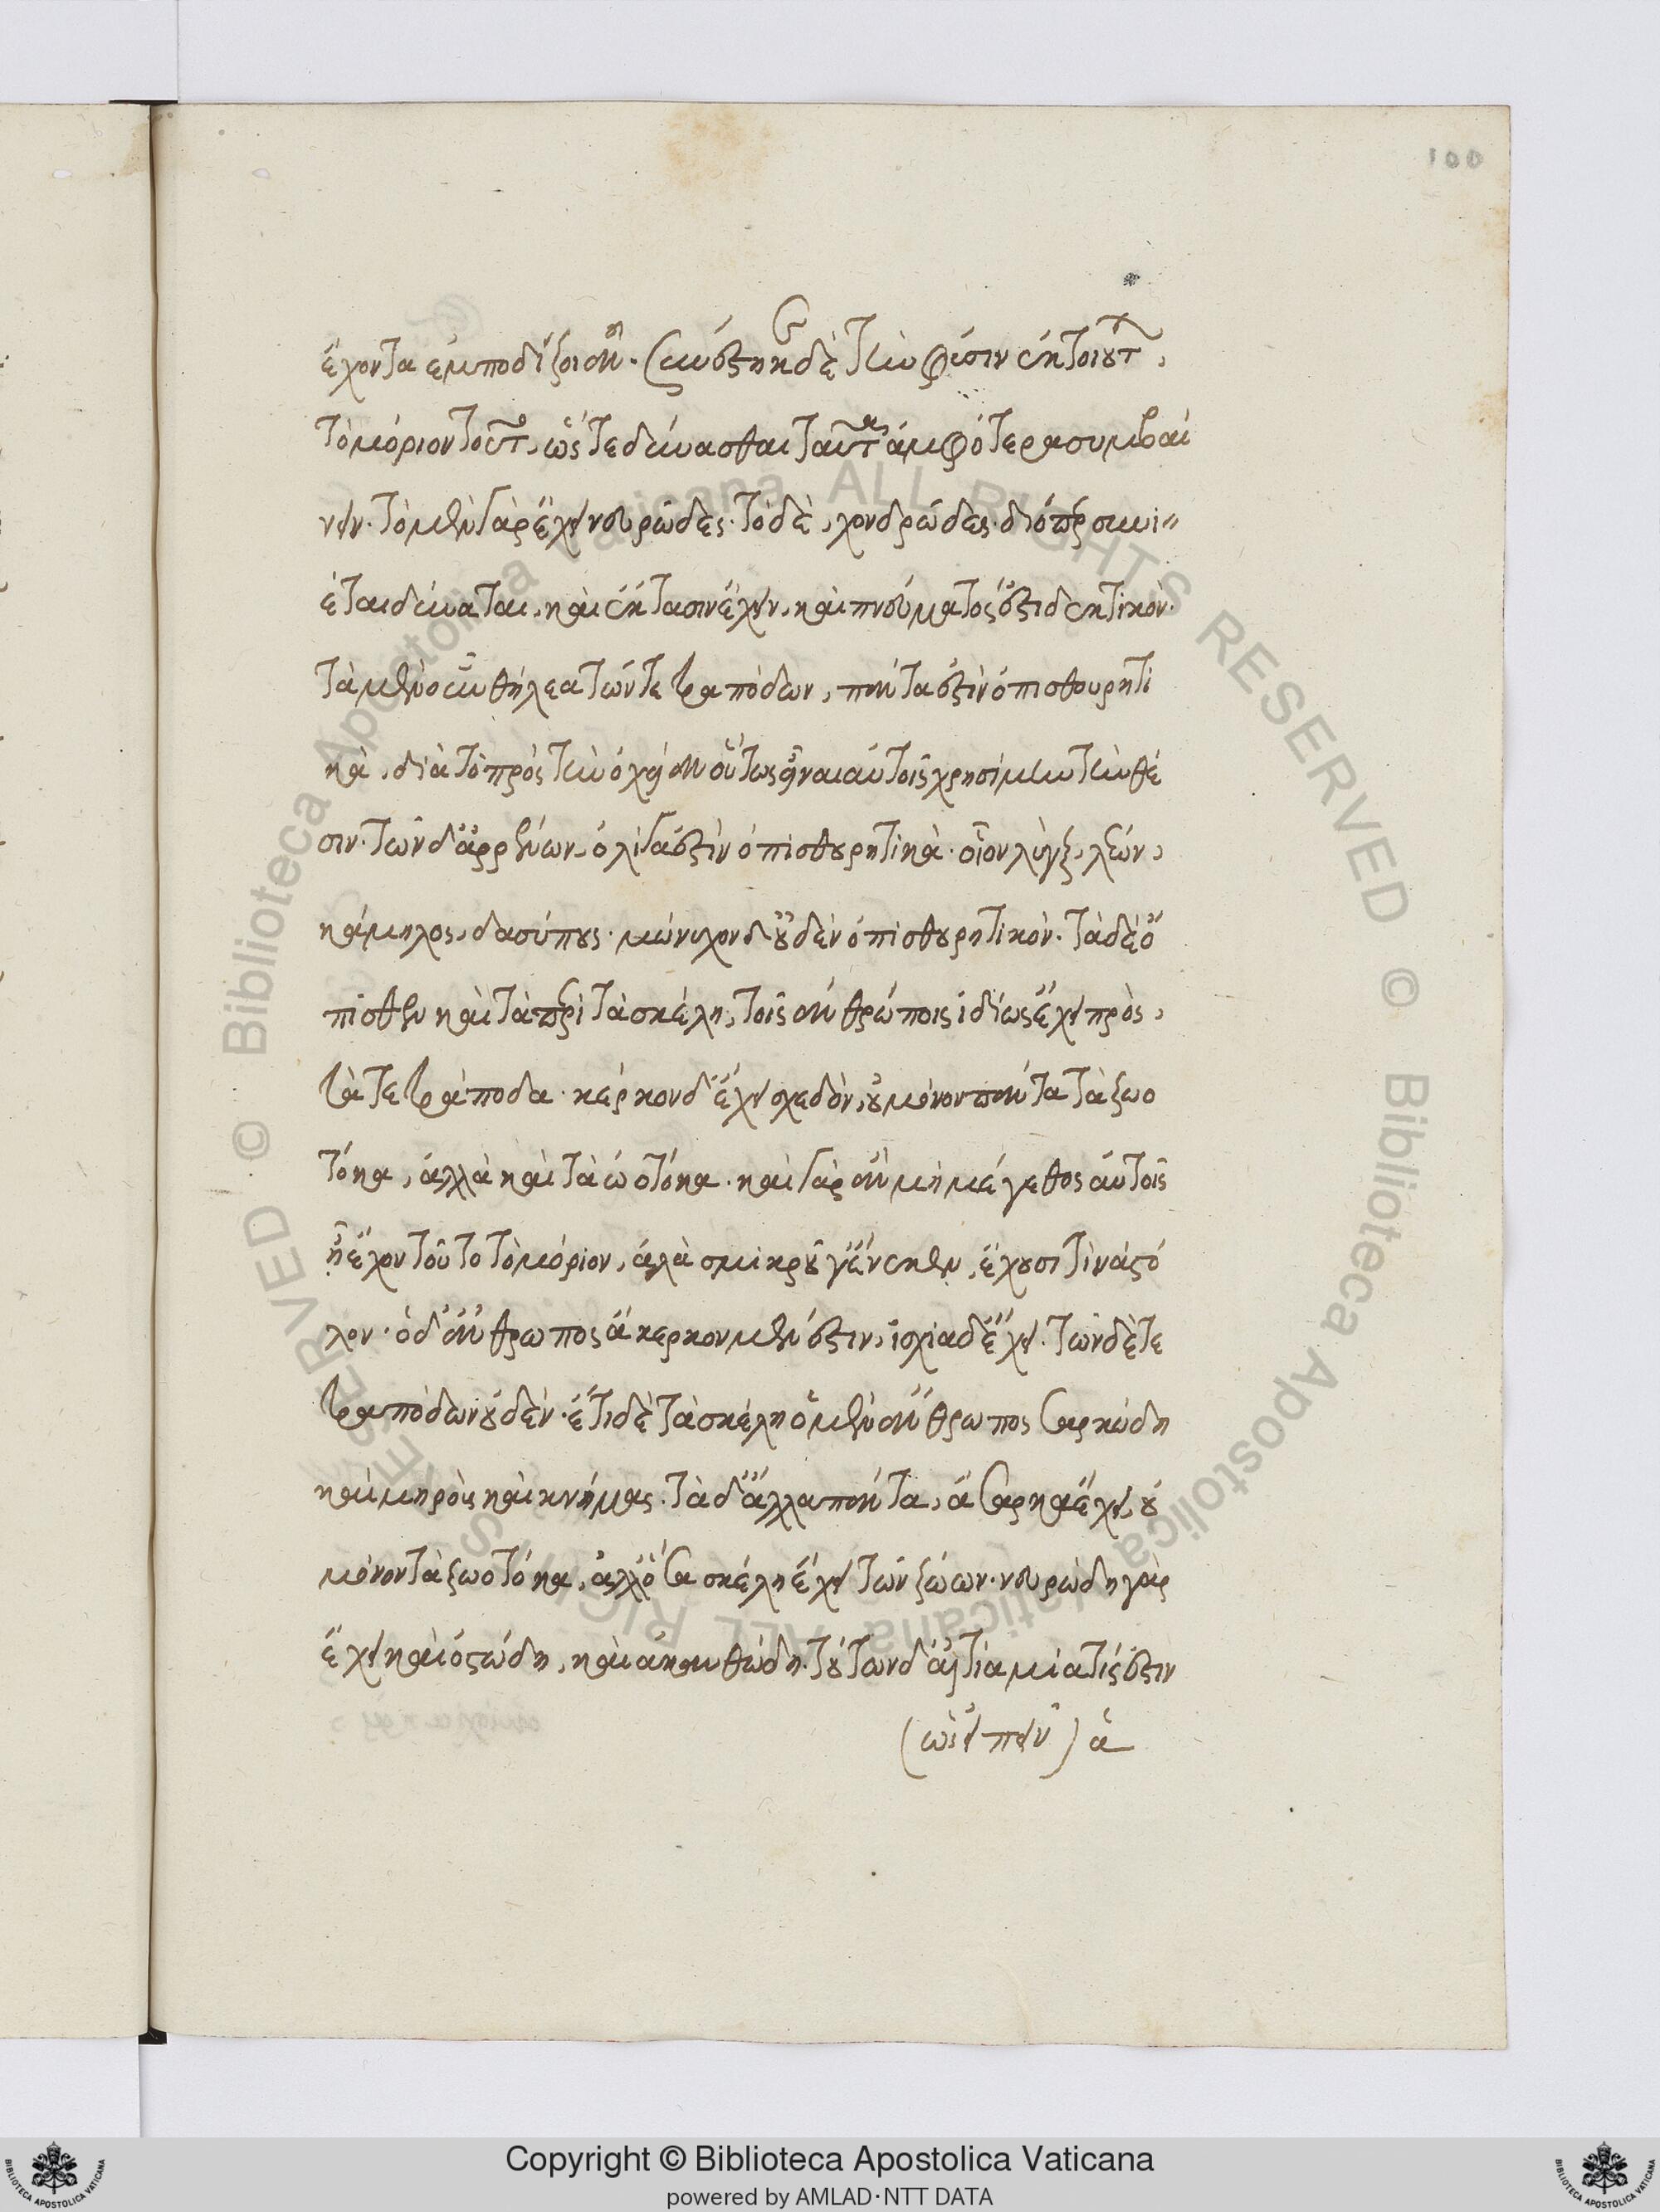 100
ἔχοντα ἐμποδίζοι ἄν. συνέστηκε δὲ τὴν φύσιν ἐκ τοιούτων,
τὸ μόριον τοῦτο, ὥστε δύνασθαι ταῦτα ἀμφότερα συμβαί
νειν. τὸ μὲν γὰρ ἔχει νευρῶδες. τὸ δὲ, χονδρῶδες. διόπερ συνι-
έται δύναται, καὶ ἔκτασιν ἔχειν, καὶ πνεύματός ἐστι δεκτικόν.
τὰ μὲν οὖν θήλεα τῶν τετραπόδων, πάντα ἐστὶν ὀπισθουρητι
κὰ, διὰ τὸ πρὸς τὴν ὀχείαν οὕτως εἶναι αὐτοῖς χρησίμην τὴν θέ
σιν. τῶν δ' ἀρρένων, ὀλίγα ἐστὶν ὀπισθουρητικὰ. οἷον λὺγξ, λέων,
κάμηλος, δασύπους. μώνυχον δ' οὐδὲν ὀπισθουρητικόν. τὰ δὲ ὄ
πισθεν καὶ τὰ περὶ τὰ σκέλη, τοῖς ἀνθρώποις ἰδίως ἔχει πρὸς,
τὰ τετράποδα. κέρκον δ' ἔχει σχεδὸν, οὐ μόνον πάντα τὰ ζωο
τόκα, ἀλλὰ καὶ τὰ ὠοτόκα. καὶ γὰρ ἂν μὴ μέγεθος αὐτοῖς
ᾖ ἔχον τοῦτο τὸ μόριον, ἀλλὰ σμικροῦ γ' ἕνεκεν, ἔχουσί τινα στό
λον. ὁ δ' ἄνθρωπος ἄκερκον μέν ἐστιν, ἰσχία δ' ἔχει. τῶν δὲ τε
τραπόδων οὐδέν. ἔτι δὲ τὰ σκέλη ὁ μὲν ἄνθρωπος σαρκώδη
καὶ μηροὺς καὶ κνήμας. τὰ δ' ἄλλα πάντα, ἄσαρκα ἔχει, οὐ
μόνον τὰ ζωοτόκα, ἀλλ' ὅσα σκέλη ἔχει τῶν ζώων. νευρώδη γὰρ
ἔχει καὶ ὀστώδη, καὶ ἀκανθώδη. τούτων δ' αἰτία μία τίς ἐστιν
(ὡς εἰπεῖν) ἁ
Copyright © Biblioteca Apostolica Vaticana
powered by AMLAD·NTT DATA